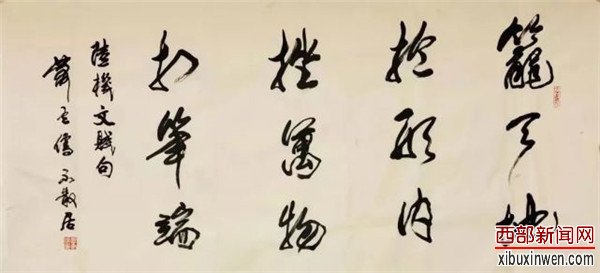 籠天地
於形内
挫萬物
於筆端
陸機文賦句
西部新闻网
xibuxinwen.com